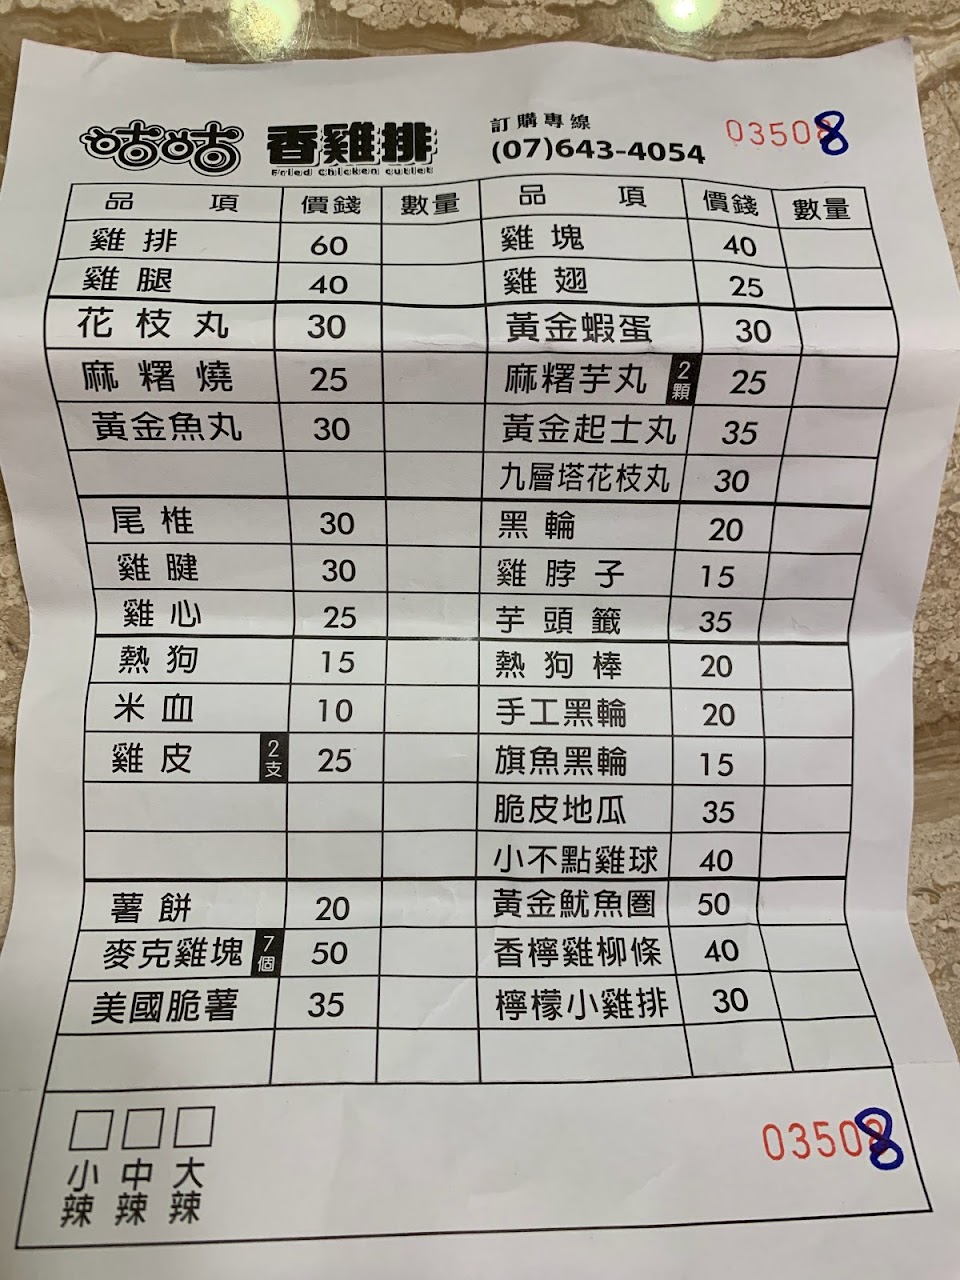 咕咕 香雞排 訂購專線
Fried Chicken cutlet (07)643-4054 03508
品項 價錢 數量 品項 價錢 數量
雞排 60 雞塊 40
雞腿 40 雞翅 25
花枝丸 30 黃金蝦蛋 30
麻糬燒 25 麻糬芋丸 2顆 25
黃金魚丸 30 黃金起士丸 35
九層塔花枝丸 30
尾椎 30 黑輪 20
雞腱 30 雞脖子 15
雞心 25 芋頭籤 35
熱狗 15 熱狗棒 20
米血 10 手工黑輪 20
雞皮 2支 25 旗魚黑輪 15
脆皮地瓜 35
小不點雞球 40
薯餅 20 黃金魷魚圈 50
麥克雞塊 7個 50 香檸雞柳條 40
美國脆薯 35 檸檬小雞排 30
小辣 中辣 大辣 03508